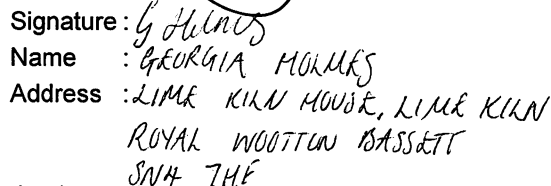 Signature : G Holmes
Name : GEORGIA HOLMES
Address : LIME KILN HOUSE, LIME KILN
ROYAL WOOTTON BASSETT
SN4 7HF